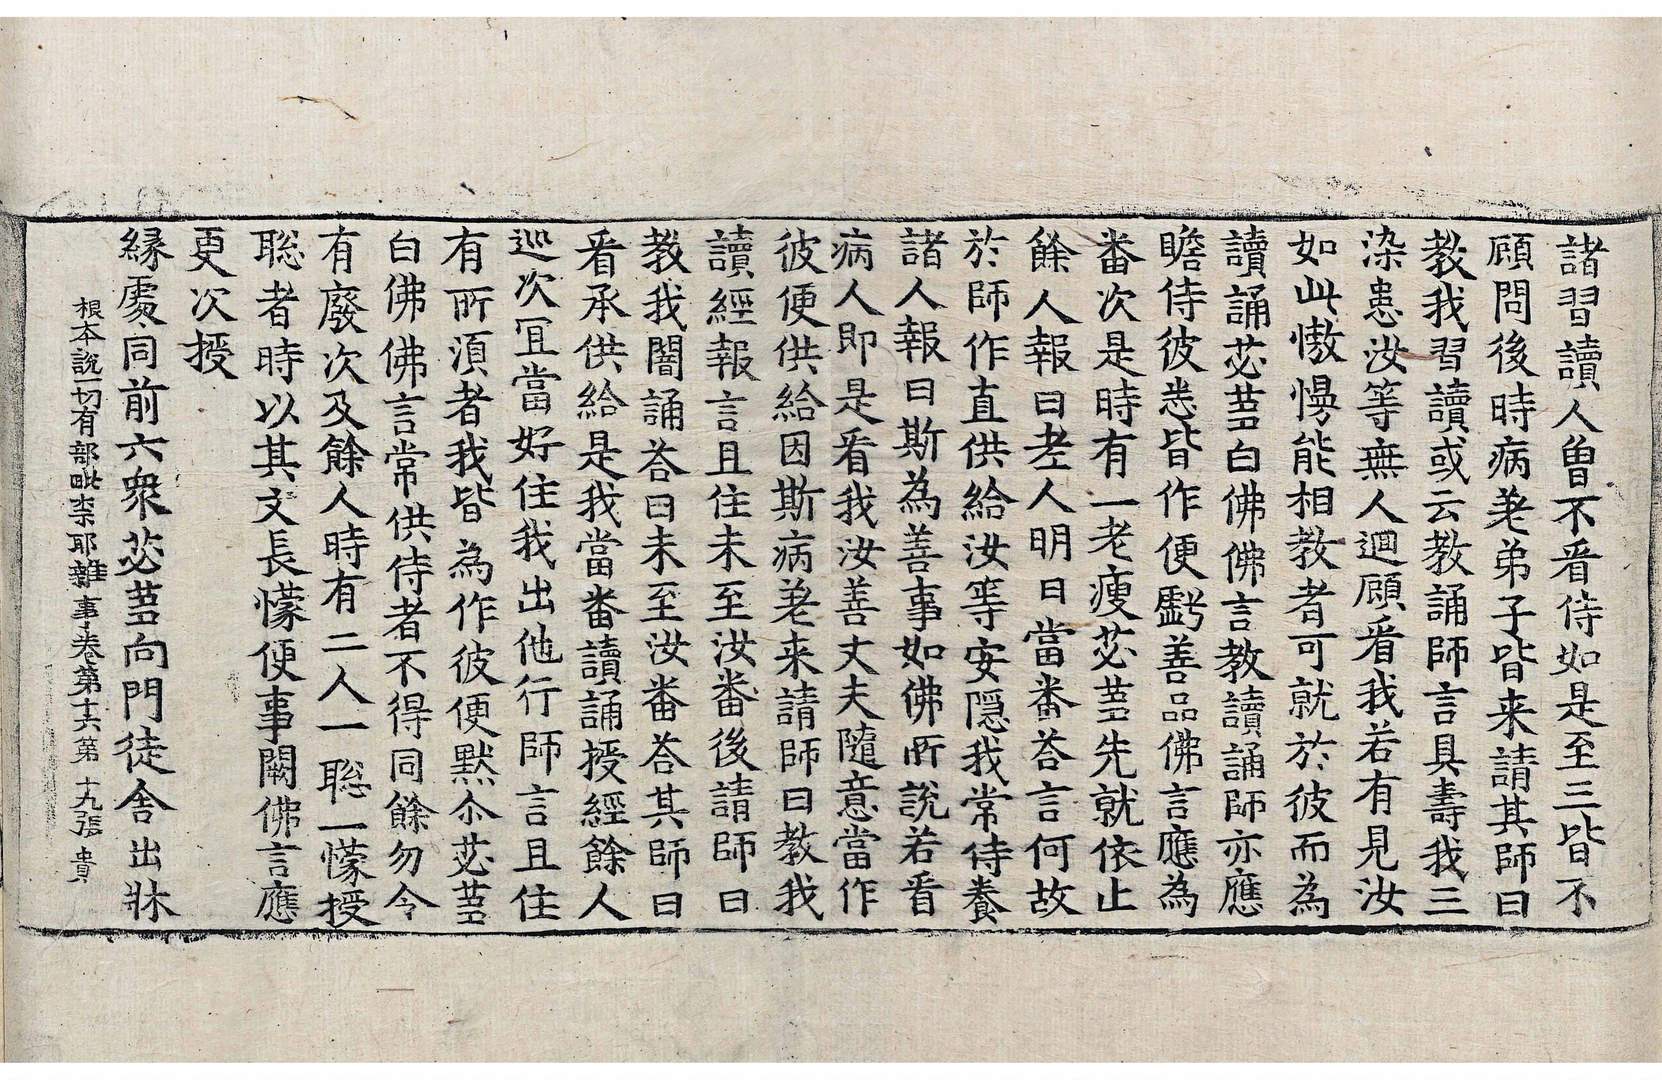 諸習讀人曾不看侍如是至三皆不
顧問後時病差弟子皆来請其師曰
教我習讀或云教誦師言具壽我三
染患汝等無人迴顧看我若有見汝
如此慠慢能相教者可就於彼而為
讀誦苾蒭白佛佛言教讀誦師亦應
瞻侍彼悉皆作便虧善品佛言應為
番次是時有一老瘦苾蒭先就依止
餘人報曰老人明日當番荅言何故
於師作直供給汝等安隱我常侍養
諸人報曰斯為善事如佛所說若看
病人即是看我汝善丈夫隨意當作
彼便供給因斯病差来請師曰教我
讀經報言且住未至汝番後請師曰
教我闇誦荅曰未至汝番荅其師曰
看承供給是我當番讀誦授經餘人
巡次冝當好住我出他行師言且住
有所湏者我皆為作彼便默尒苾蒭
白佛佛言常供侍者不得同餘勿令
有廢次及餘人時有二人一聡一懞授
聡者時以其文長懞便事闕佛言應
更次授
縁處同前六衆苾蒭向門徒舍出牀
根本說一切有部毗柰耶雜事卷第十六第十九張 貴